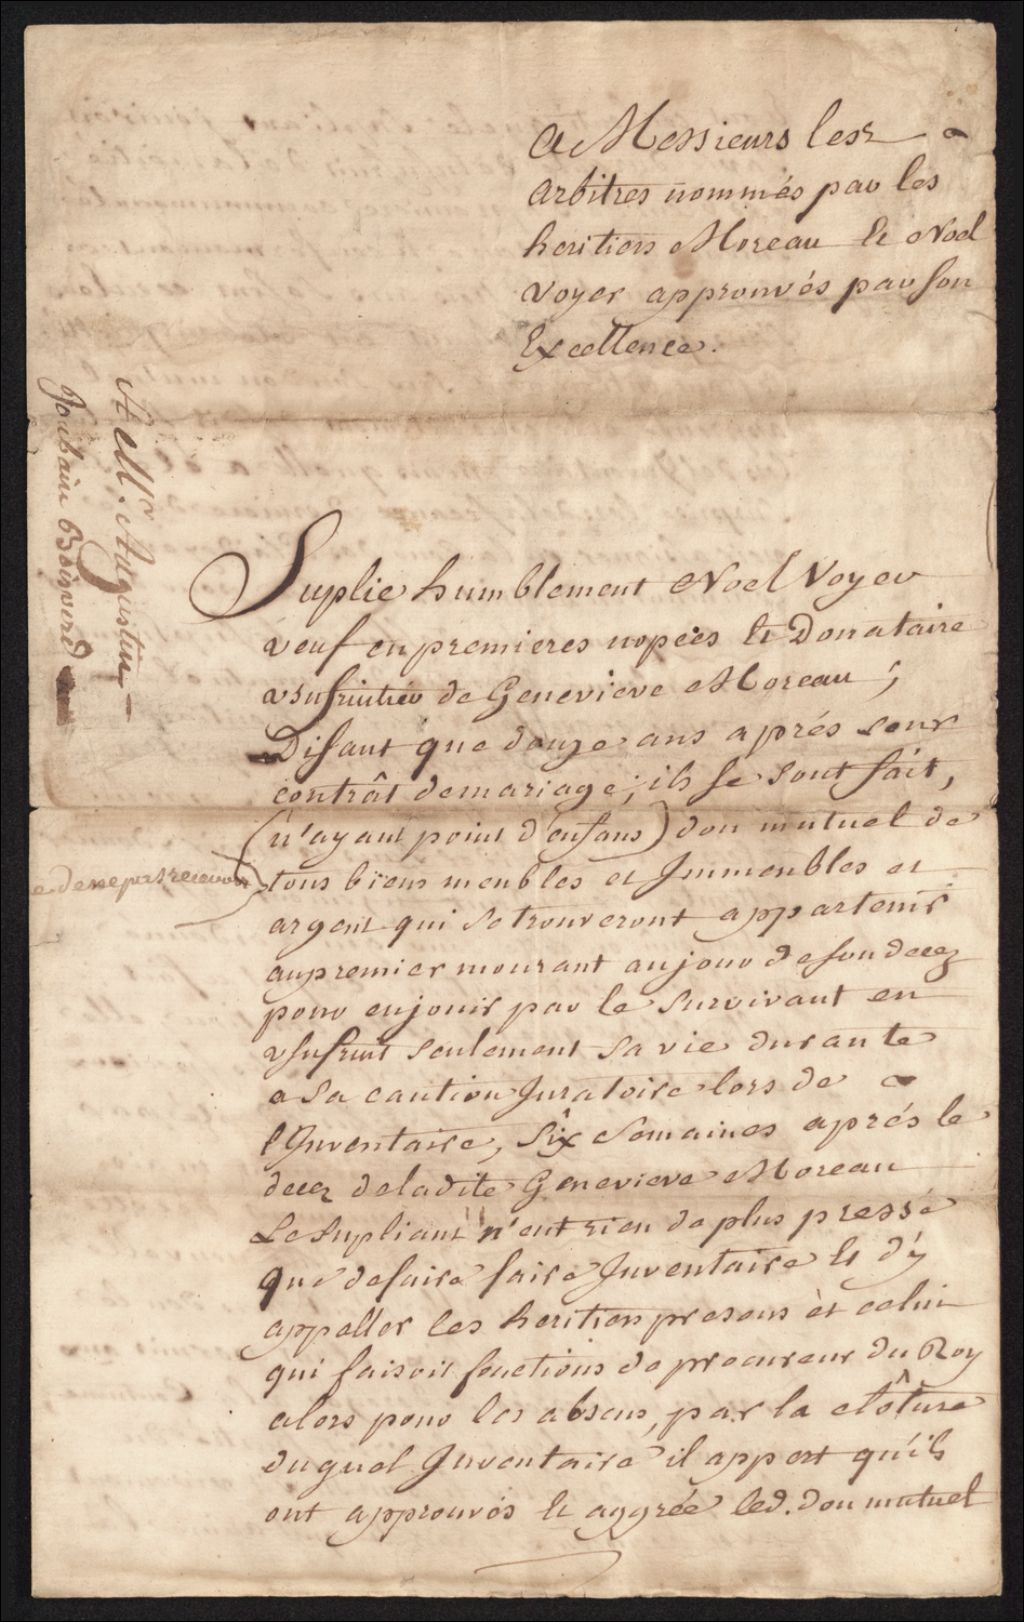 A Messieurs les
arbitres nommés par les
heritiers Moreau & Noel
Voyer approuvés par son
Excellence.
Aell. Augustin
Joubain Boisverd
Suplie humblement Noel Voyer
veuf en premieres nopces & Donataire
usufruitier de Genevieve Moreau;
Disant que douze ans aprés leur
contrât de mariage; ils se sont fait,
(n'ayant point d'enfans) don mutuel de
tous biens meubles et Immeubles et
argent qui se trouveront appartenir
au premier mourant au jour de son decez
pour en jouir par le survivant en
usufruit seulement sa vie durante
a sa caution Juratoire lors de
l'Inventaire, Six semaines aprés le
decez de ladite Genevieve Moreau
Le Supliant n'eut rien de plus pressé
que de faire faire Inventaire & d'y
appeller les heritiers presens èt celui
qui faisoit fonctions de procureur du Roy
alors pour les absens, par la clôture
duquel Inventaire il appert qu'ils
ont approuvés & aggrée led. don mutuel